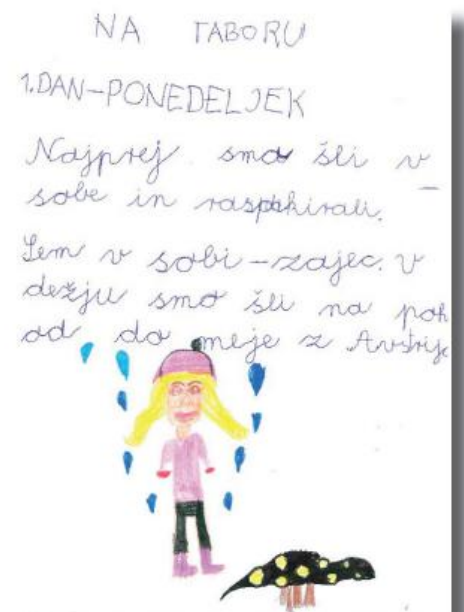 NA TABORU
1. DAN-PONEDELJEK
Najprej smo šli v
sobe in raspakirali.
Sem v sobi-zajec. V
dežju smo šli na poh
od do meje z Avstrije